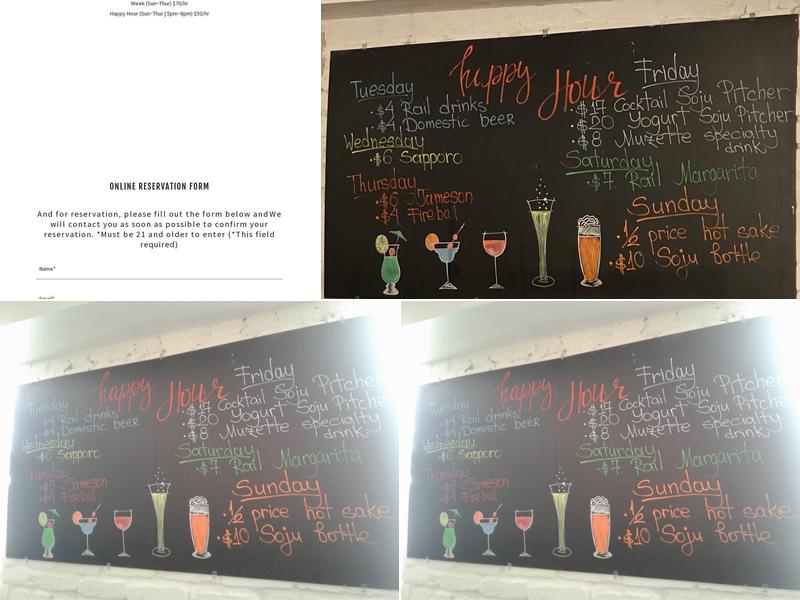 Week (Sun~Thur) $70/hr
Happy Hour (Sun~Thur | 5pm~8pm) $50/hr
ONLINE RESERVATION FORM
And for reservation, please fill out the form below and We
will contact you as soon as possible to confirm your
reservation. *Must be 21 and older to enter (*This field
required)
Name*
Email*
happy Hour
Tuesday
$4 Rail drinks
$4 Domestic beer
Wednesday
$6 Sapporo
Thursday
$6 Jameson
$4 Fireball
Friday
$17 Cocktail Soju Pitcher
$20 Yogurt Soju Pitcher
$8 Muzette specialty
drink
Saturday
$7 Rail Margarita
Sunday
1/2 price hot sake
$10 Soju bottle
happy Hour
Tuesday
$4 Rail drinks
$4 Domestic beer
Wednesday
$6 Sapporo
Thursday
$6 Jameson
$4 Fireball
Friday
$17 Cocktail Soju Pitcher
$20 Yogurt Soju Pitche
$8 Muzette specialty
drink
Saturday
$7 Rail Margarita
Sunday
1/2 price hot sake
$10 Soju bottle
happy Hour
Tuesday
$4 Rail drinks
$4 Domestic beer
Wednesday
$6 Sapporo
Thursday
$6 Jameson
$4 Fireball
Friday
$17 Cocktail Soju Pitcher
$20 Yogurt Soju Pitche
$8 Muzette specialty
drink
Saturday
$7 Rail Margarita
Sunday
1/2 price hot sake
$10 Soju bottle